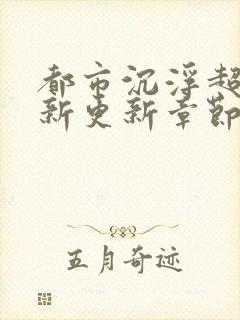 都市沉浮超
新更新章節
五月奇迹